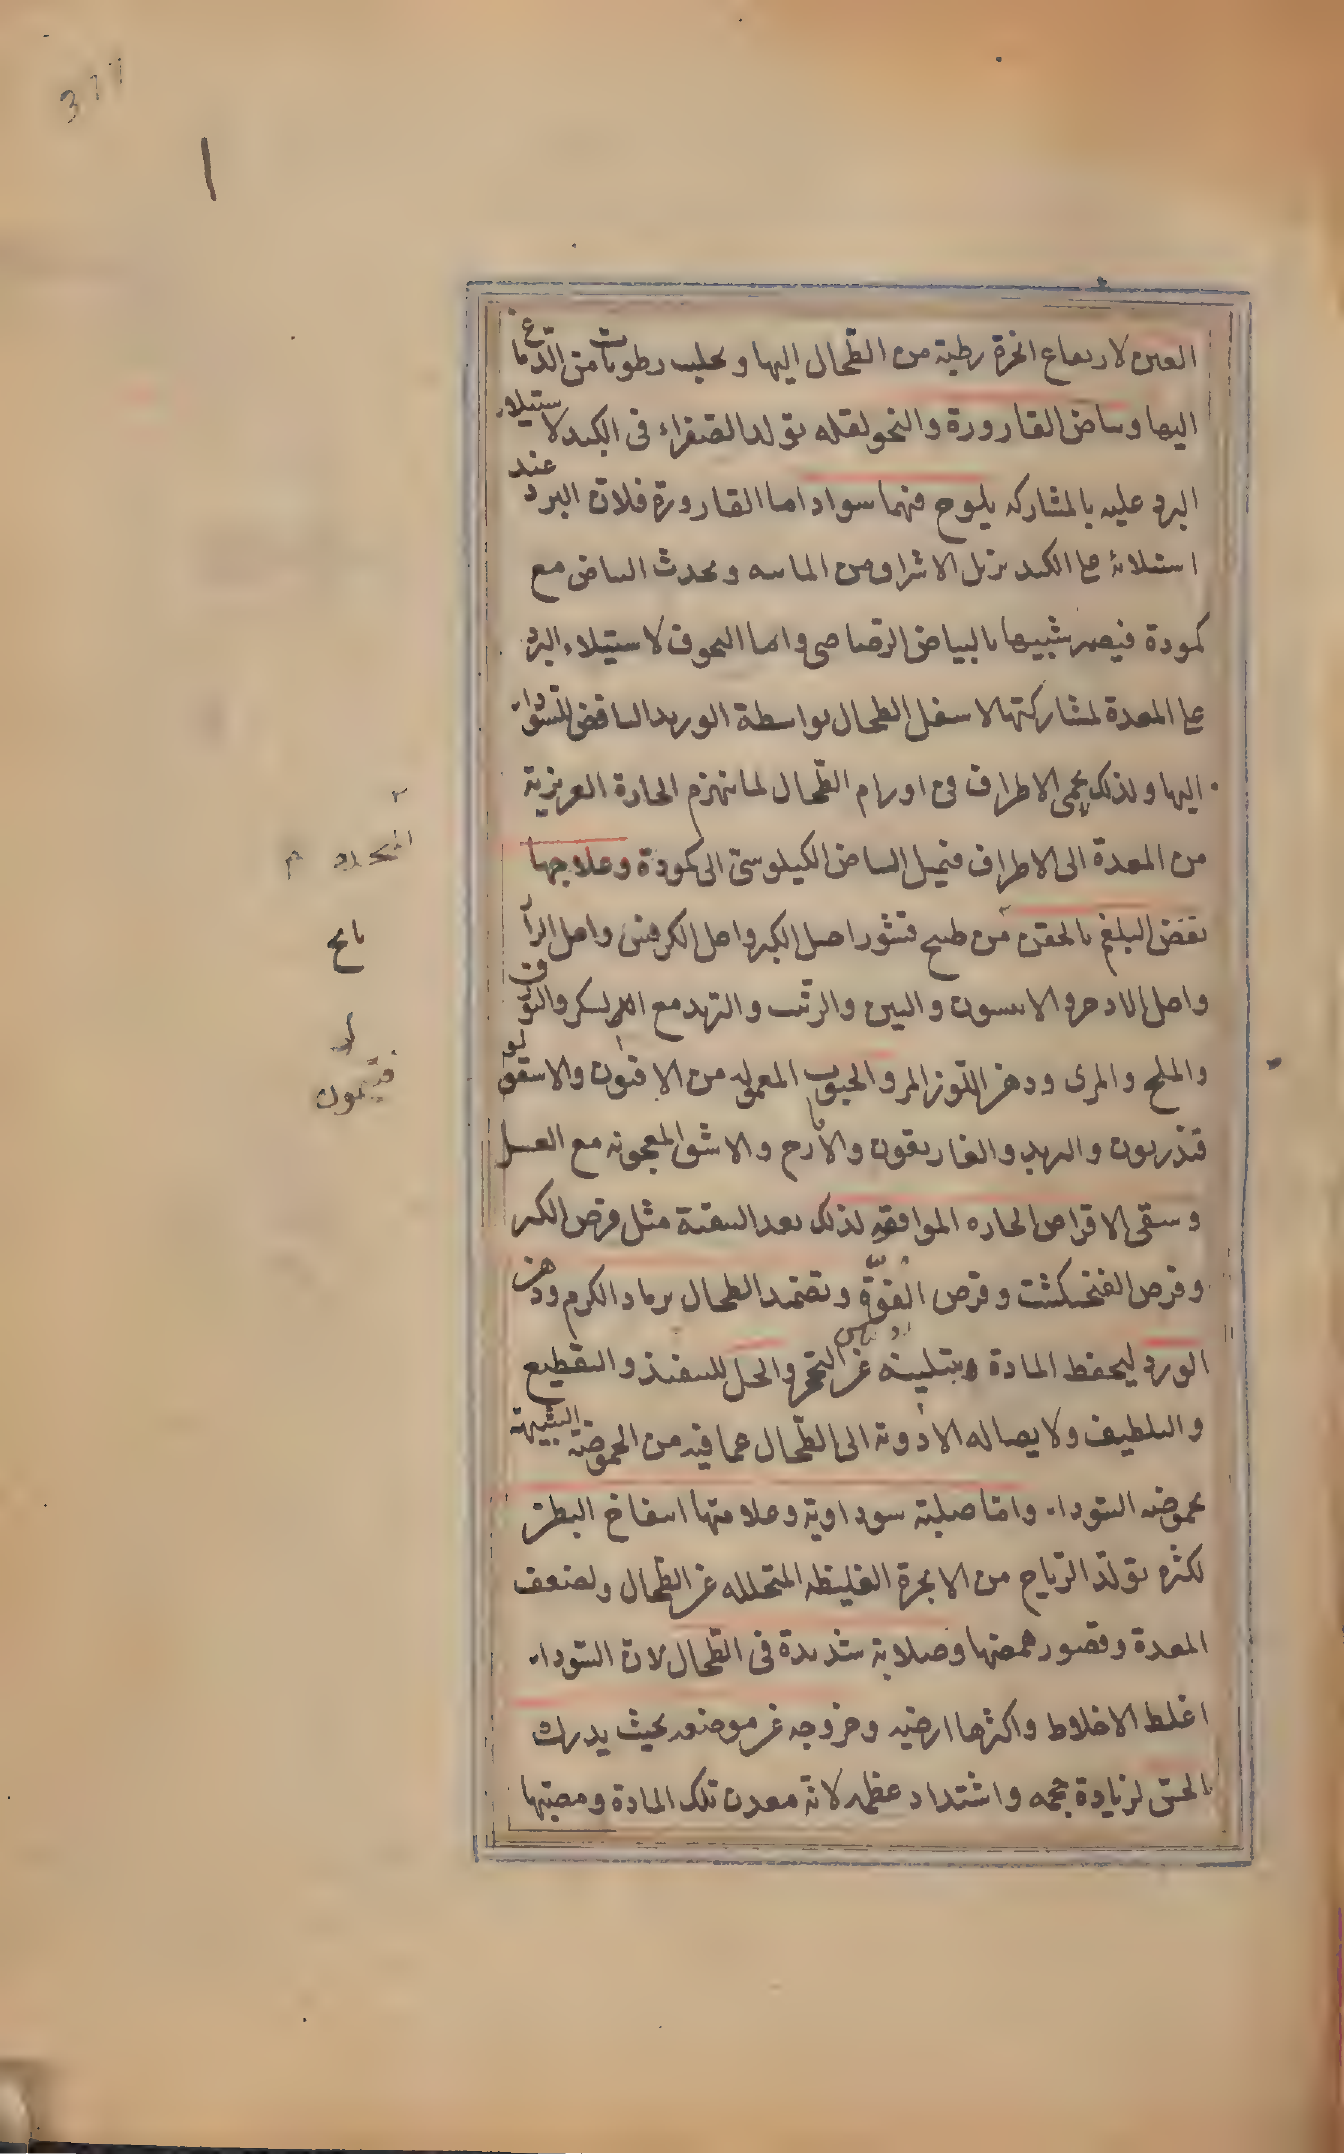 العين لارتفاع ابخرة رطبة من الطحال اليها وتحلب رطوبات من الدماغ
اليها وبياض القارورة والنجو لقله تولد الصفراء فى الكبد لاستيلاء
البرد عليه بالمشاركه يلوح فيهما سواد اما القارورة فلان البرد عند
استيلائه على الكبد يزيل الاشراق من المائيه ويحدث البياض مع
كمودة فيصير شبيها بالبياض الرصاصى واما النجو فلاستيلاء البرد
على المعدة لمشاركتها لاسفل الطحال بواسطة الوريد النافض للسوداء
اليها ولذلك يحمى الاطراف فى اورام الطحال لما ينهزم الحارة الغريزية
من المعدة الى الاطراف فيميل البياض الكيلوسى الى كمودة وعلاجها
نفض البلغم بالحقن من طبيخ قشور اصل الكبر واصل الكرفس واصل الراز
واصل الاذخر والانيسون والتين والزبيب والتربد مع السكر والبورق
والملح والمرى ودهن اللوز المر والحبوب المعموله من الافتيون والاسقولو
قندريون والتربد والغاريقون والايارج والاشق المعجونه مع العسل
وسقى الاقراص الحاره الموافقه لذلك بعد التنقية مثل قرص الكبر
وقرص الفنجنكشت وقرص الفوة وتضميد الطحال برماد الكرم ودهن
الورد ليحفظ المادة وبتليينه عن التحجر والخل للتنفيذ والتقطيع
والتلطيف ولايصاله الادوية الى الطحال عما فيه من الحموضة الشبيهة
بحموضه السوداء واما صلبة سوداوية وعلامتها انتفاخ البطن
لكثره تولد الرياح من الابخرة الغليظه المتحلله عن الطحال ولضعف
المعدة وقصور هضمها وصلابة شديدة فى الطحال لان السوداء
اغلظ الاخلاط واكثرها ارضيه وخروجه عن موضعه بحيث يدرك
بالحس لزيادة حجمه واشتداد عظمه لانه معدن تلك المادة ومصبها
فتيمون
377